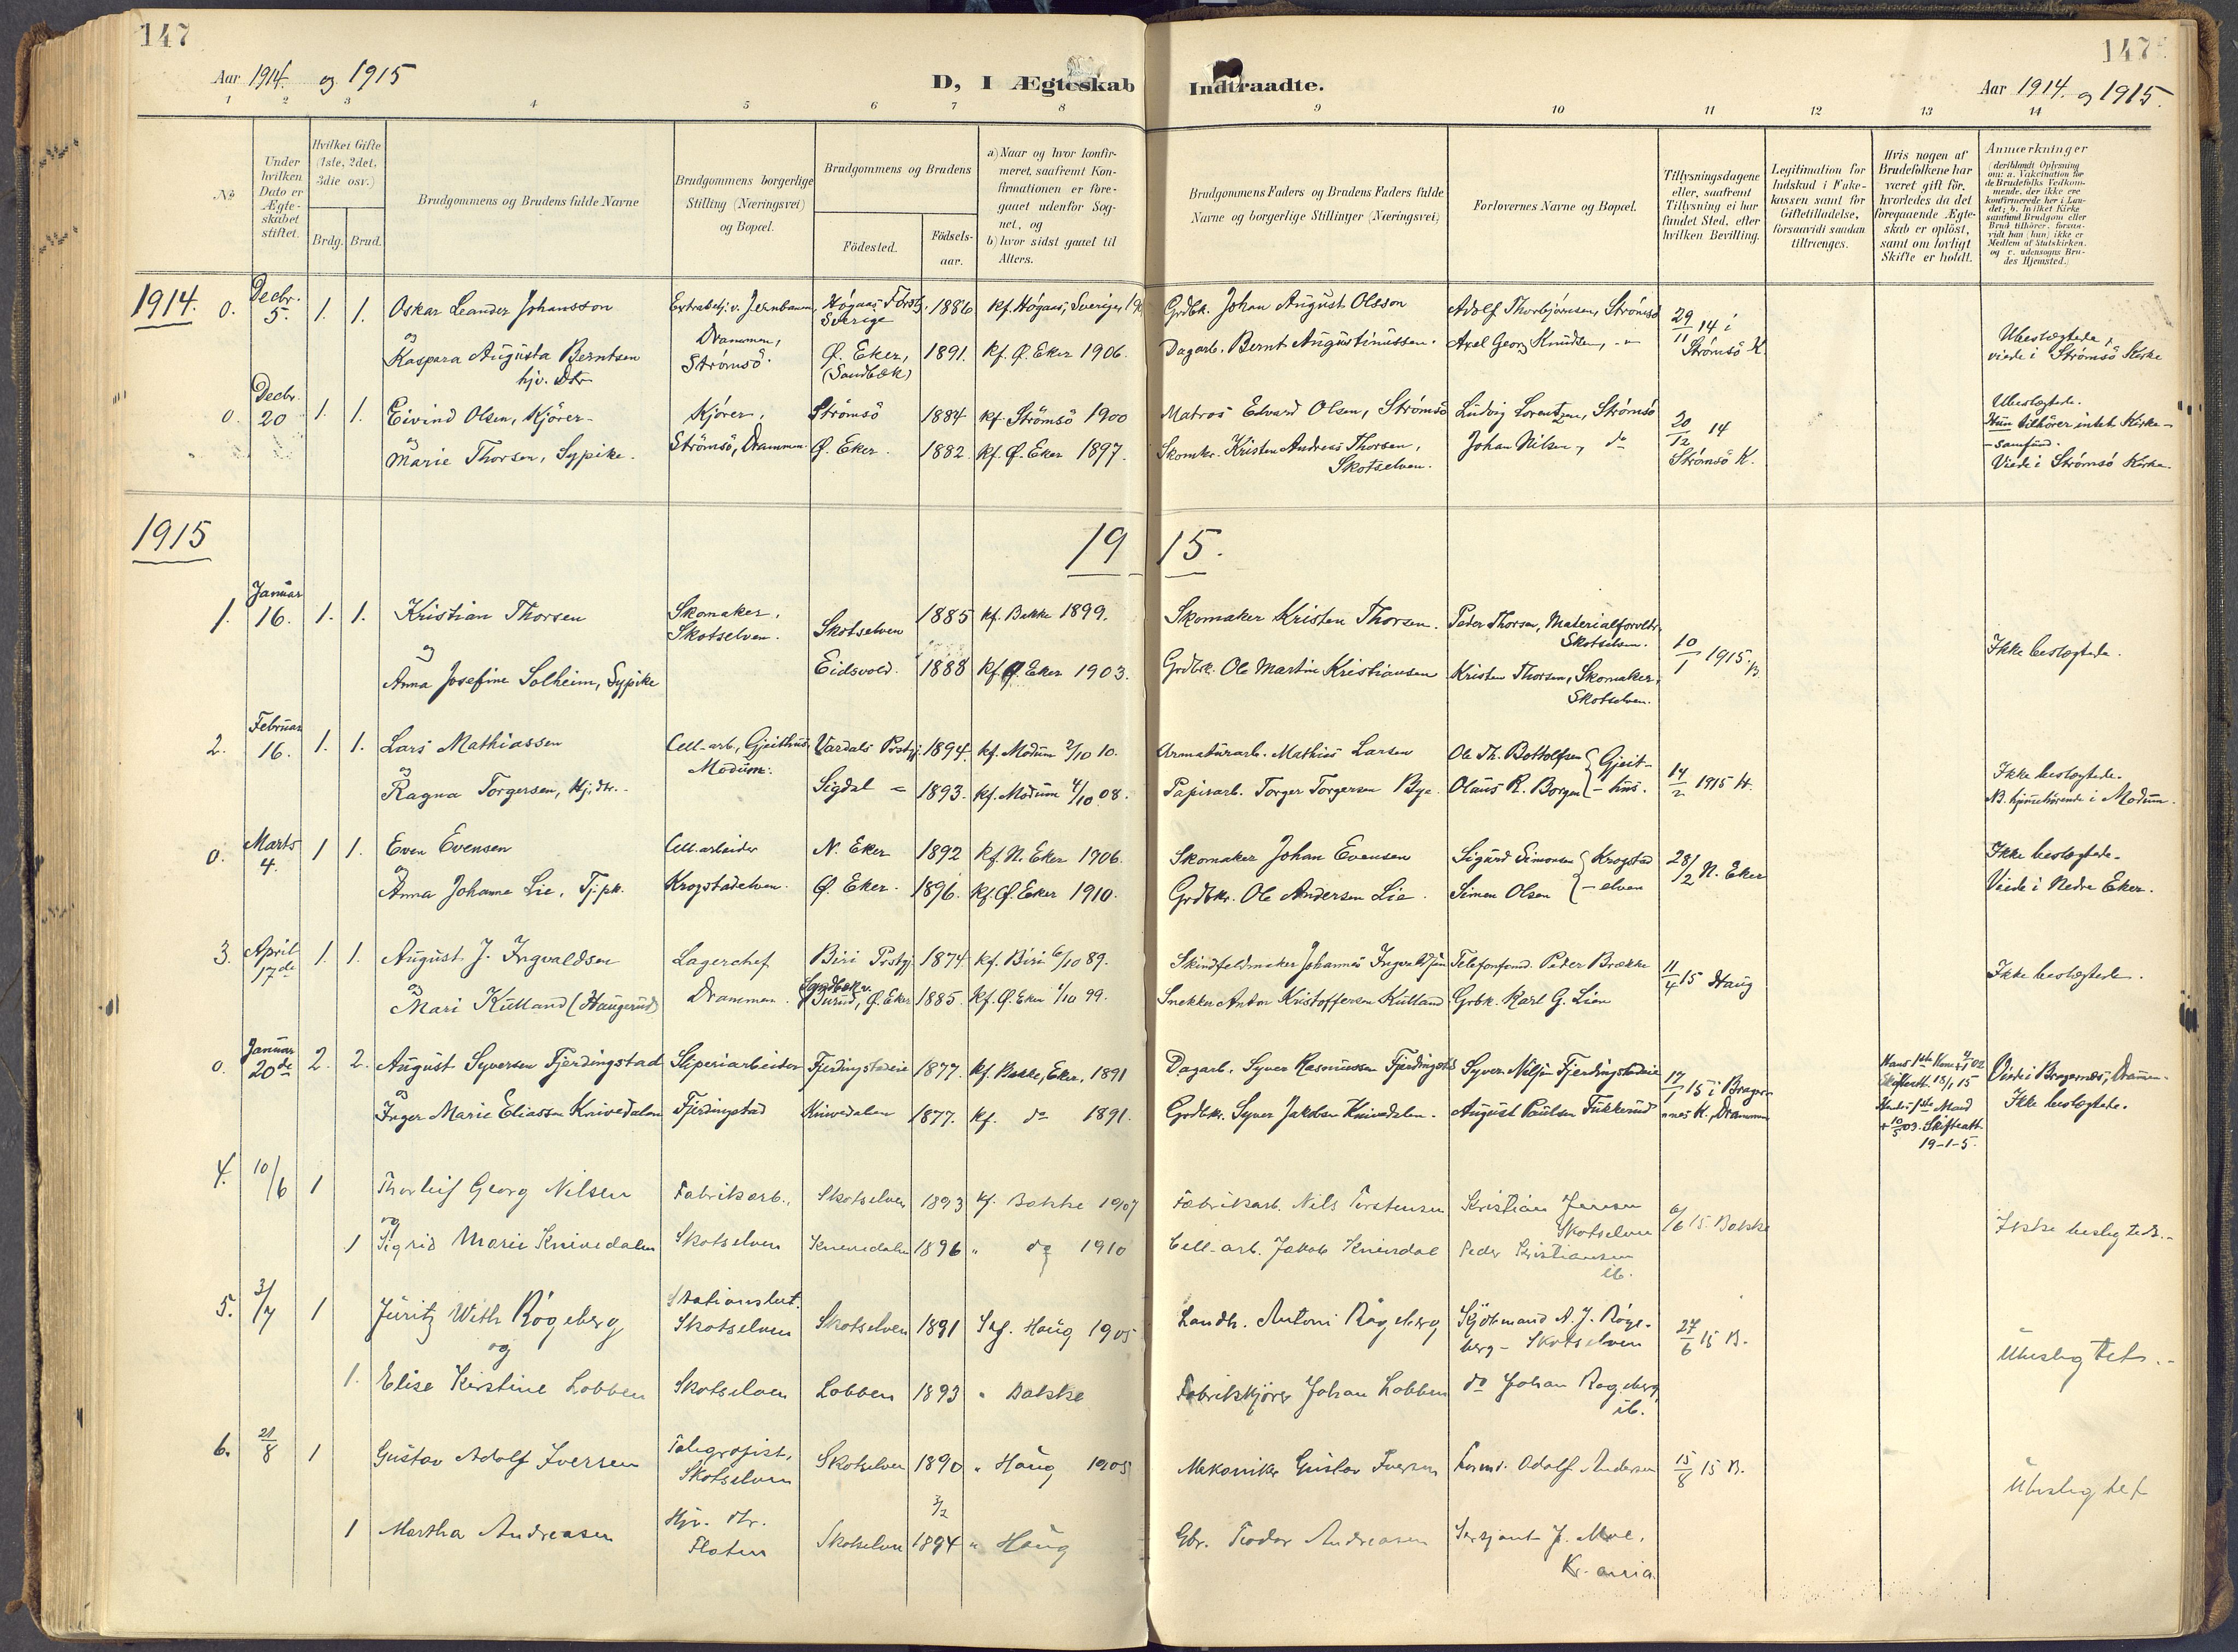 147
147
Aar 1914. og 1915
D, I Ægteskab Indtraadte.
Aar 1914. og 1915.
1 2 3 4 5 6 7 8 9 10 11 12 13 14
No.
Under hvilken Dato er Ægteskabet stiftet.
Hvilket Gifte (1ste, 2det, 3die osv.)
Brdg. Brud.
Brudgommens og Brudens fulde Navne
Brudgommens borgerlige Stilling (Næringsvei) og Bopæl.
Brudgommens og Brudens
Födested.
Födselsaar.
a) Naar og hvor konfirmeret, saafremt Konfirmationen er foregaaet udenfor Sognet, og
b) hvor sidst gaaet til Alters.
Brudgommens Faders og Brudens Faders fulde Navne og borgerlige Stillinger (Næringsvei)
Forlovernes Navne og Bopæl.
Tillysningsdagene eller, saafremt Tillysning ei har fundet Sted, efter hvilken Bevilling.
Legitimation for Indskud i Enkekassen samt for Giftetilladelse, forsaavidt saadan tiltrænges.
Hvis nogen af Brudefolkene har været gift för, hvorledes da det foregaaende Ægteskab er oplöst, samt om lovligt Skifte er holdt.
Anmærkninger
(deriblandt Oplysning om: a. Vakcination for de Brudefolks Vedkommende, der ikke ere konfirmerede her i Landet; b. Hvilket Kirkesamfund Brudgom eller Brud tilhörer, forsavidt han (hun) ikke er Medlem af Statskirken, og c. udensogns Brudes Hjemsted.)
1914. 0. Decbr. 5. 1. 1. Oskar Leander Johansson
Drammen, Strömsö.
Högaas Sverige 1886 Kf. Högaas, Sverige
Grdbk. Johan August Olsson
Adolf Thorbjørnsen, Strömsö
29/11 14 i Strömsö K.
og
Kaspara Augusta Berntsen
hjv. Dtr
Ø. Eker, (Sandbæk) 1891. Kf. Ø. Eker 1906.
Dagarb. Bernt Augustinussen.
Axel Georg Knudsen, - "
Ubeslægtede, viede i Strömsö Kirke
0. Decbr. 20 1. 1. Eivind Olsen, Kjörer
Kjörer, Strömsö, Drammen.
Strömsö 1884 Kf. Strömsö 1900
Matros Edvard Olsen, Strömsö
Ludvig Lorentzen, Strömsö
20/12 14 Strömsö K.
og
Marie Thorsen, Sypike.
Ø. Eker. 1882. Kf. Ø. Eker 1897.
Skomkr. Kristen Andreas Thorsen, Skotselven.
Johan Nilsen, do
Ubeslægtede.
Hun tilhörer intet Kirke-
samfund.
Viede i Strömsö Kirke.
1915
1915.
1. Januar 16. 1. 1. Kristian Thorsen
Skomaker, Skotselven.
Skotselven 1885 Kf. Bakke 1899.
Skomaker Kristen Thorsen.
Peder Thorsen, Materialforvltr. Skotselven.
10/1 1915. B.
og
Anna Josefine Solheim, Sypike
Eidsvold. 1888 Kf. Ø. Eker 1903.
Grdbk. Ole Martin Kristiansen
Kristen Thorsen, Skomaker, Skotselven.
Ikke beslægtede.
2. Februar 16. 1. 1. Lars Mathiassen
Cell-arb, Gjeithus, Modum.
Vardals Prstgj. 1894. Kf. Modum 2/10 10.
Armaturarb. Mathias Larsen
Ole Th. Bottolfsen
Gjeit-
hus.
14/2 1915 H.
og
Ragna Torgersen, Hj. dtr.
Sigdal " 1893. Kf. Modum 4/10 08.
Papirarb. Torger Torgersen Bye
Olaus R. Borgen
Ikke beslægtede.
NB. hjemmehörende i Modum.
0. Marts 4. 1 1. Even Evensen
Cell.arbeider
Krogstadelven.
N. Eker 1892 Kf. N. Eker 1906.
Skomaker Johan Evensen
Sigurd Simonsen
Krogstad
- elven
28/2 N. Eker
og
Anna Johanne Lie, Tj. pk.
Ø. Eker. 1896. Kf. Ø. Eker 1910.
Grdbkr. Ole Andersen Lie.
Simen Olsen
Ikke beslægtede.
Viede i Nedre Eker.
3. April 17de 1. 1. August J. Ingvaldsen
Lagerchef
Drammen.
Biri Prstgj. 1874. Kf. Biri 6/10 89.
Skindfeldmaker Johannes Ingvaldsen
Telefonfomd. Peder Brække
11/4 15 Haug
og
Mari Kulland (Haugerud)
Ø. Eker 1885. Kf. Ø. Eker 1/10 99.
Snekker Anton Kristoffersen Kulland
Grbk. Karl G. Lien
Ikke beslægtede.
0. Januar 20de 2. 2. August Syversen Fjerdingstad
Sliperiarbeider
Fjerdingstad
Fjerdingstadeie 1877. Kf. Bakke, Eker, 1891
Dagarb. Syver Rasmussen Fjerdingstd
Syver Nilsen Fjerdingstadeie
17/1 15 i Brager-
næs K., Drammen
og
Inger Marie Eliassen Knivedalen
Knivedalen 1877. Kf. do 1891.
Grdbkr. Syver Jakobsen Knivedalen.
August Paulsen Fukkerud
Hans 1ste Kone
Skifteatt. 18/1 15
Hendes 1ste Mand
+ 10/5 03. Skifteatt.
19-1-5.
Viede i Bragernæs, Drammen.
Ikke beslægtede.
4. 10/6 1 Thorleif Georg Nilsen
Fabrikarb.,
Skotselven
Skotselven 1893 Kf. Bakke 1907
Fabrikarb. Nils Torstensen
Kristian Jensen Skotselven
6/6 15. Bakke
og
1 Sigrid Marie Knivedalen
Knivedalen 1896 " do 1910
Cell-arb. Jakob Knivedal
Peder Kristiansen ib.
Ikke beslegtede.-
5. 3/7 1 Juritz With Rögeberg
Skotselven
Skotselven 1891 Haug 1905
Landh. Antoni Rögeberg
A. J. Röge-
berg - Skotselven
27/6 15 B.
og
1. Elise Kirstine Lobben
Skotselven
Lobben 1893 " Bakke
Fabrikskjörer Johan Lobben
do Johan Rögeberg, ib.
Ubeslegtet.-
6. 21/8 1 Gustav Adolf Iversen
Telegrafist, Skotselven
Skotselven 1890 " Haug 1905
Mekaniker Gustav Iversen
Adolf Andersen
15/8 15 B.
1 Martha Andreasen
Hjv. dtr.
Flaten
Skotselven 3/2 1894 " Haug
Gbr. Teodor Andreasen
Sersjant J. Moe, Kr.ania.
Ubeslegtet